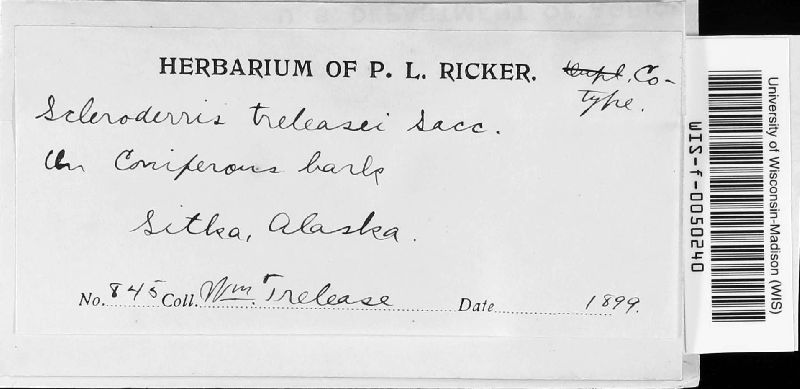 HERBARIUM OF P. L. RICKER. Co-
type.
Scleroderris treleasei Sacc.
On Coniferous bark
Sitka, Alaska.
No. 845 Coll. Wm. Trelease Date 1899.
University of Wisconsin-Madison (WIS)
WIS-f-0050240